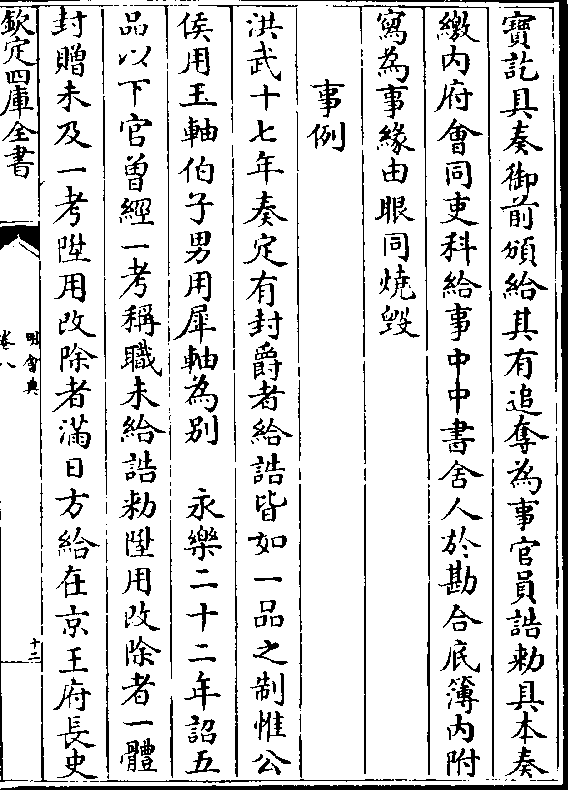 寶訖具奏御前頒給其有追奪為事官員誥勅具本奏
繳内府會同吏科給事中中書舍人於勘合底簿内附
寫為事緣由眼同燒毀
事例
洪武十七年奏定有封爵者給誥皆如一品之制惟公
侯用玉軸伯子男用犀軸為別　永樂二十二年詔五
品以下官曾經一考稱職未給誥勅陞用改除者一體
封贈未及一考陞用改除者滿日方給在京王府長史
欽定四庫全書
明會典
卷八
十二